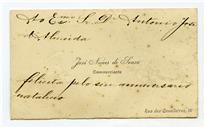 Ao Exmo Sr. D. Antonio José
d'Almeida
José Nunes de Sousa
Commerciante
felicita pelo seu anniversario
natalicio
Rua dos Cavalleiros,